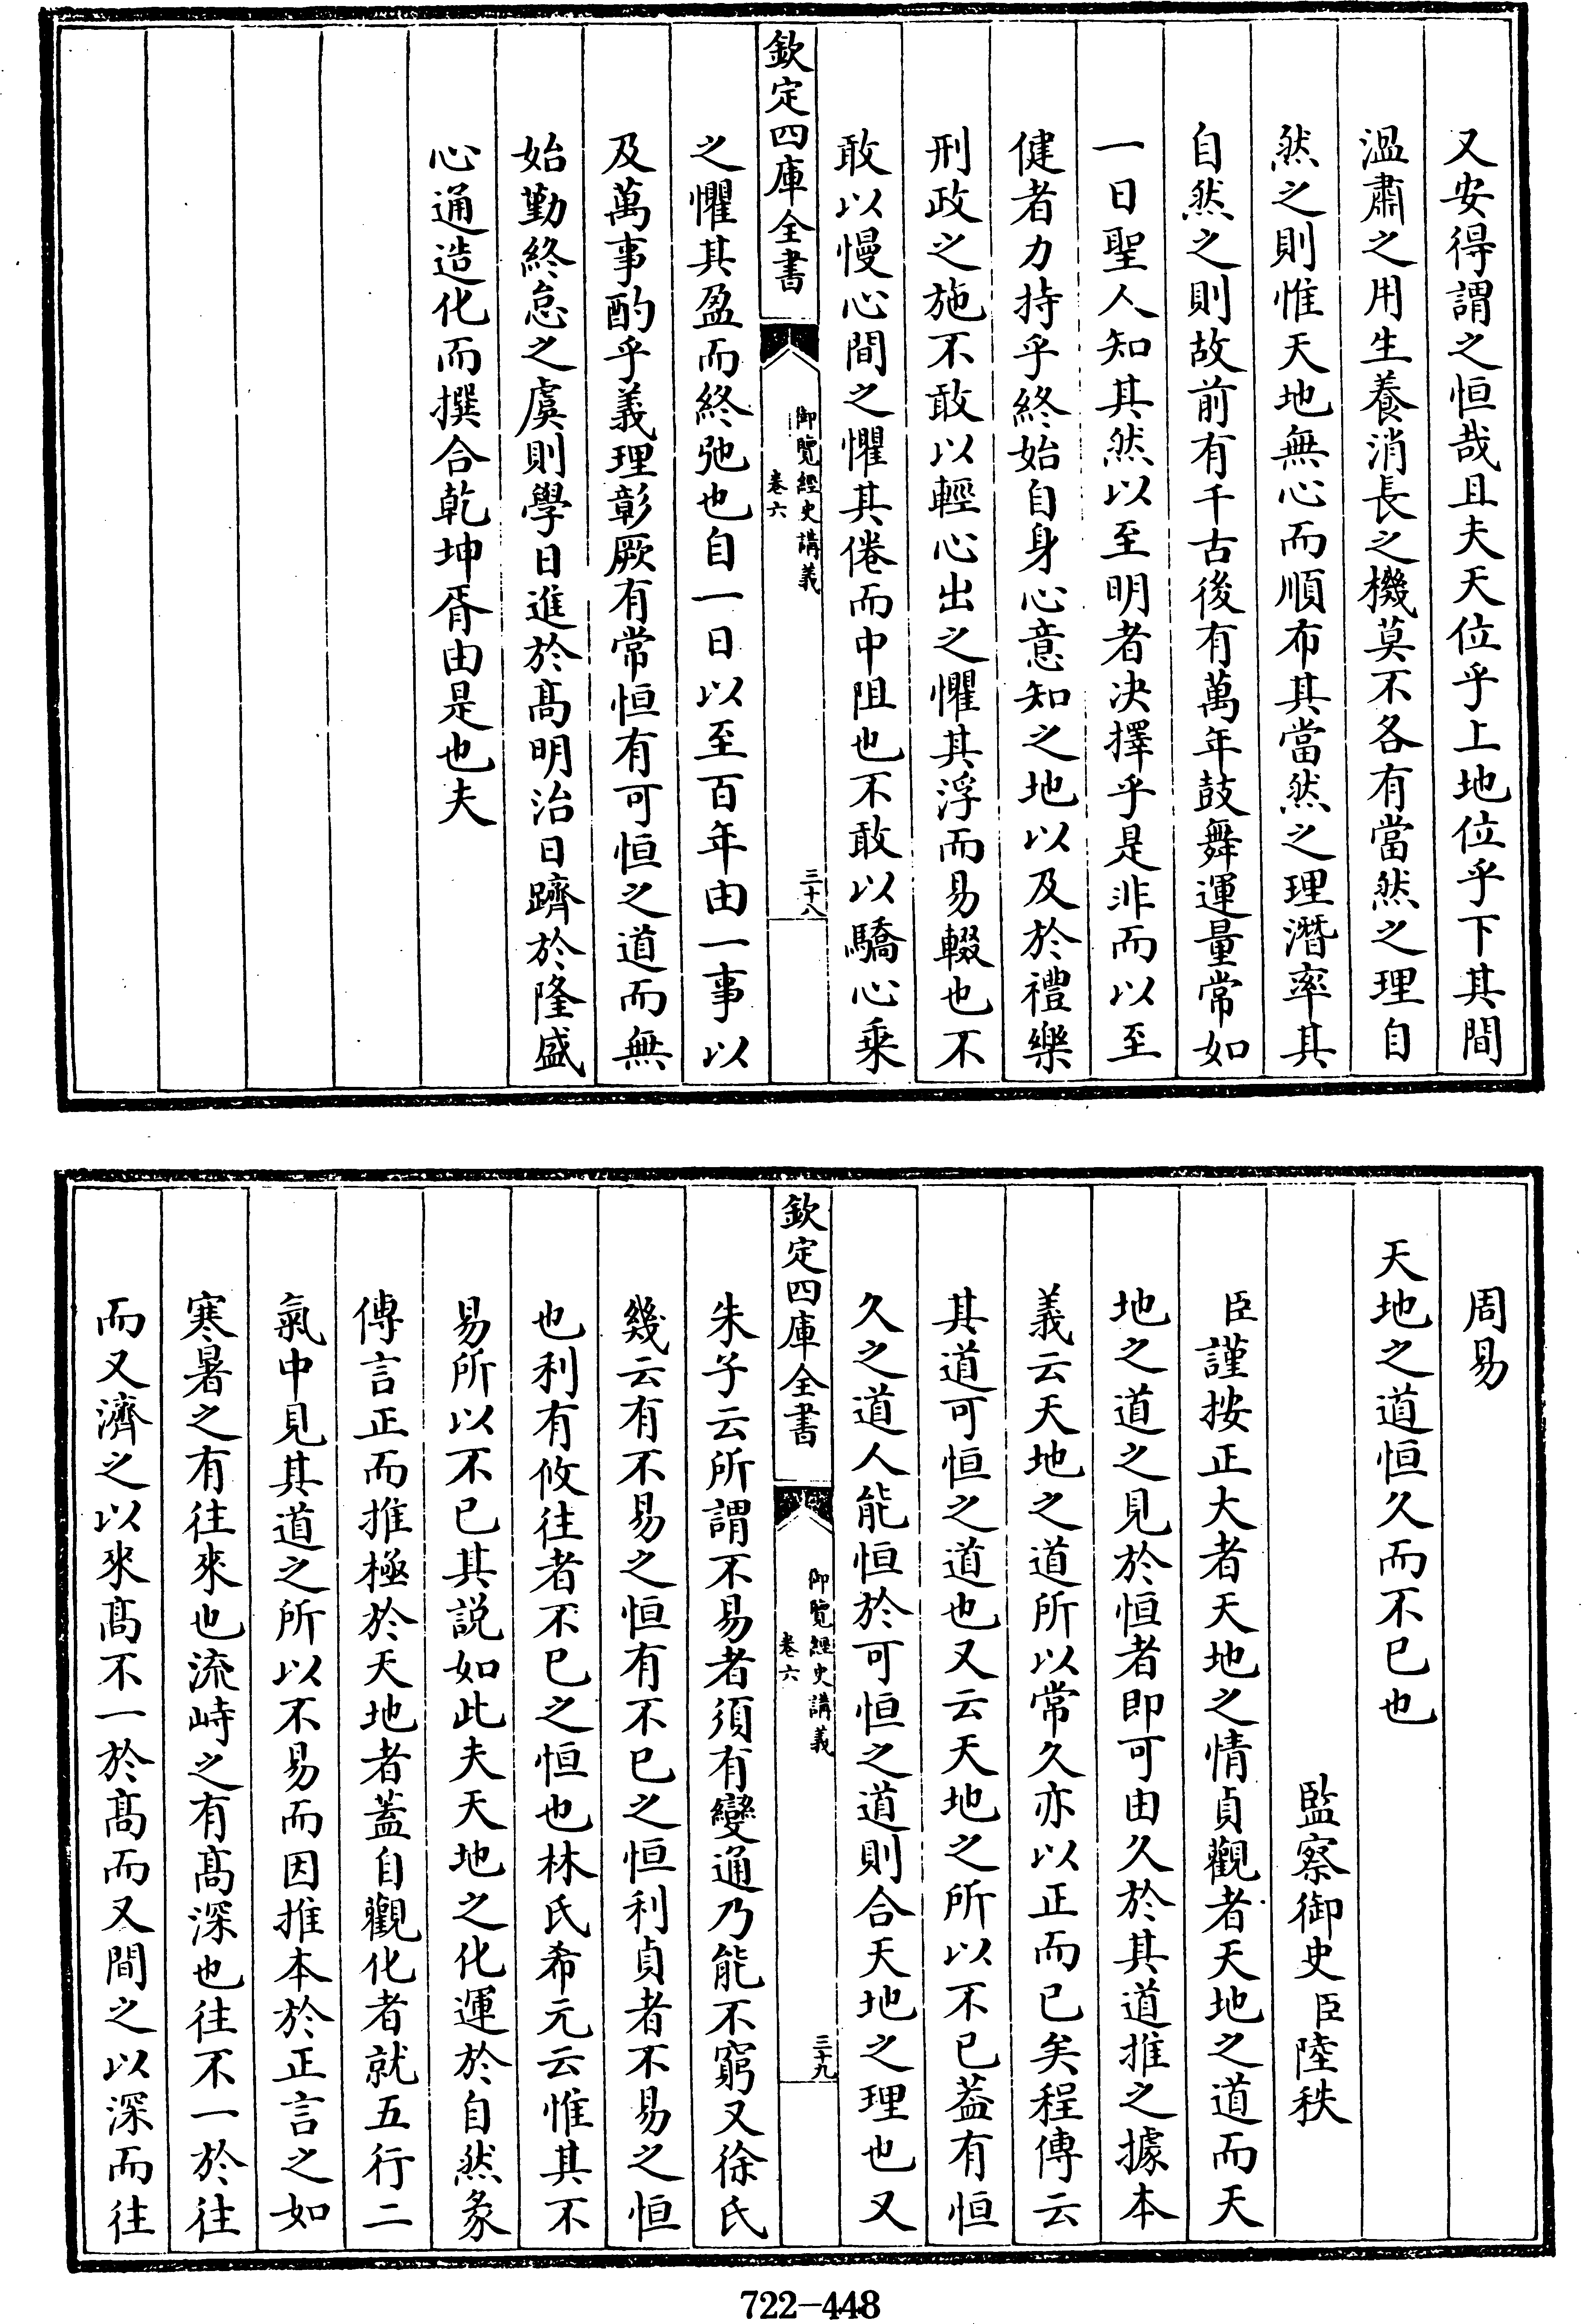 又安得謂之恒哉且夫天位乎上地位乎下其間
溫肅之用生養消長之機莫不各有當然之理自
然之則惟天地無心而順布其當然之理潛率其
自然之則故前有千古後有萬年鼓舞運量常如
一日聖人知其然以至明者决擇乎是非而以至
健者力持乎終始自身心意知之地以及於禮樂
刑政之施不敢以輕心出之懼其浮而易輟也不
敢以慢心間之懼其倦而中阻也不敢以驕心乗
欽定四庫全書
御覽經史講義
卷六
三十八
之懼其盈而終弛也自一日以至百年由一事以
及萬事酌乎義理彰厥有常恒有可恒之道而無
始勤終怠之虞則學日進於髙明治日躋於隆盛
心通造化而撰合乾坤胥由是也夫
周易
天地之道恒久而不已也
監察御史臣陸秩
臣謹按正大者天地之情貞觀者天地之道而天
地之道之見於恒者即可由久於其道推之據本
義云天地之道所以常久亦以正而已矣程傳云
其道可恒之道也又云天地之所以不已葢有恒
久之道人能恒於可恒之道則合天地之理也又
欽定四庫全書
御覽經史講義
卷六
三十九
朱子云所謂不易者須有變通乃能不窮又徐氏
幾云有不易之恒有不已之恒利貞者不易之恒
也利有攸往者不已之恒也林氏希元云惟其不
易所以不已其説如此夫天地之化運於自然彖
傳言正而推極於天地者蓋自觀化者就五行二
氣中見其道之所以不易而因推本於正言之如
寒暑之有往來也流峙之有髙深也往不一於往
而又濟之以來髙不一於髙而又間之以深而往
722-448